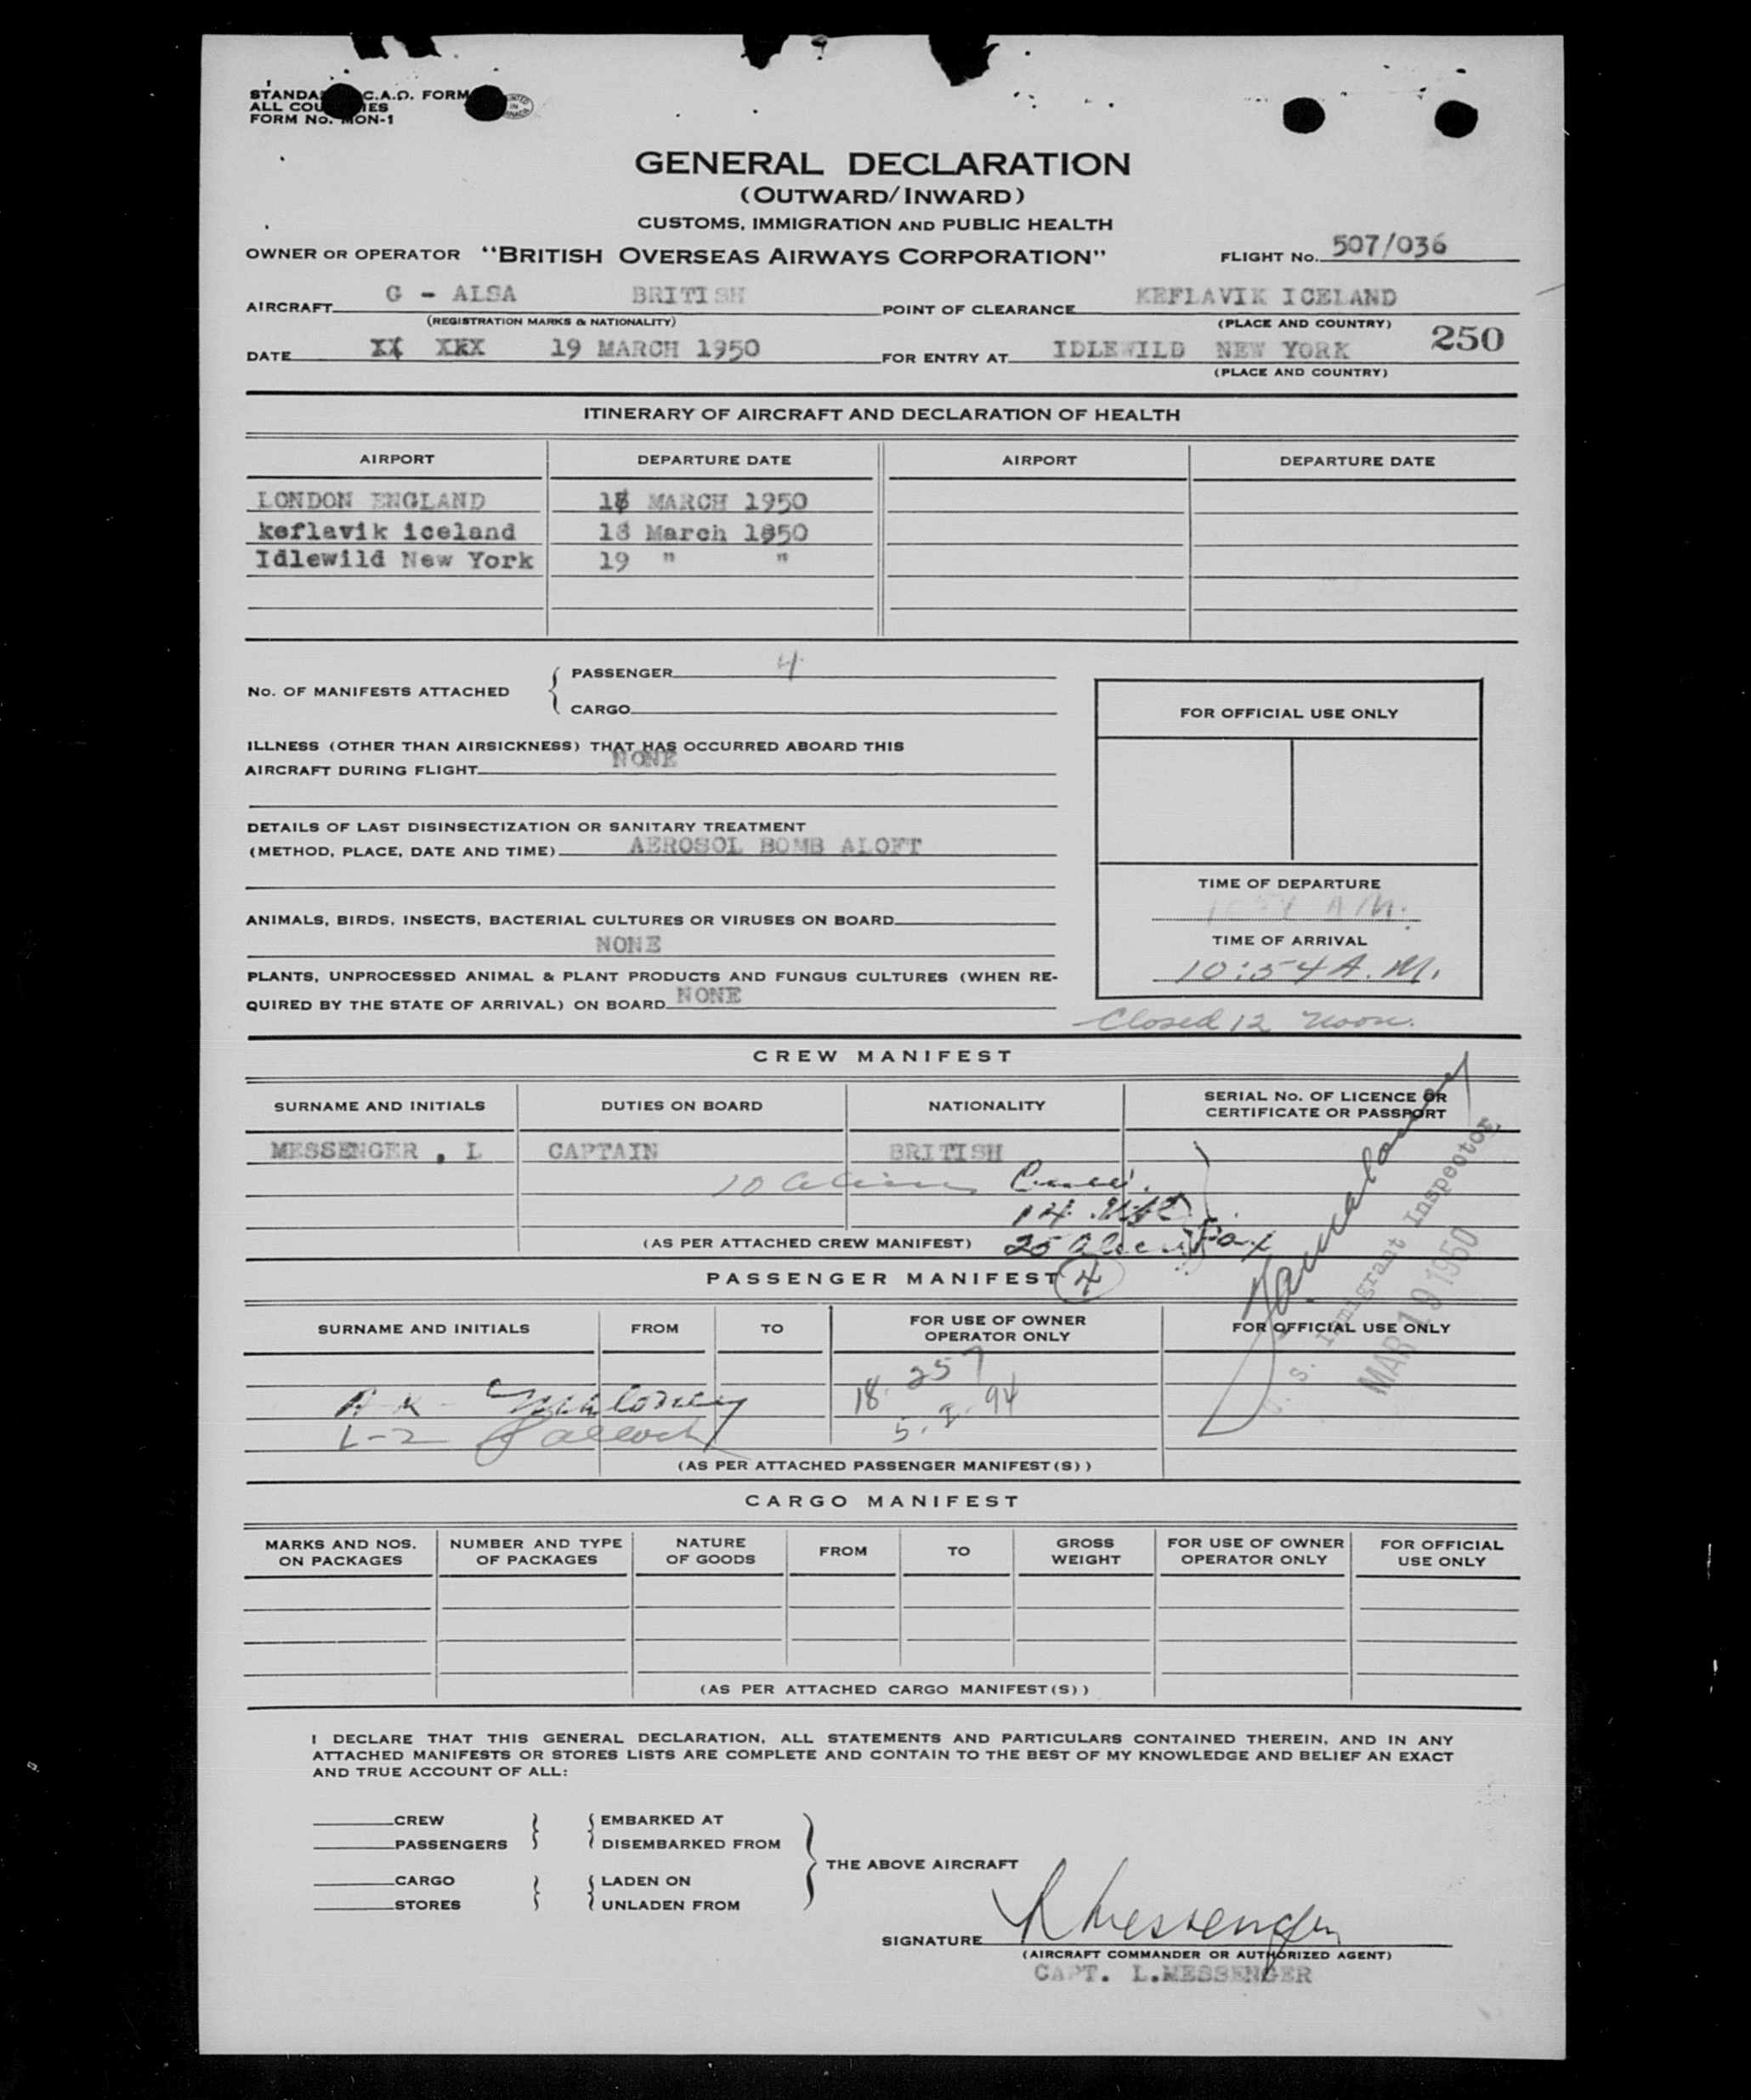 STANDA C.A.O. FORM
ALL COU IES
FORM No. MON-1
GENERAL DECLARATION
(OUTWARD/INWARD)
CUSTOMS, IMMIGRATION AND PUBLIC HEALTH
OWNER OR OPERATOR "BRITISH OVERSEAS AIRWAYS CORPORATION" FLIGHT No. 507/036
AIRCRAFT G - ALSA BRITISH POINT OF CLEARANCE KEFLAVIK ICELAND
(REGISTRATION MARKS & NATIONALITY) (PLACE AND COUNTRY)
DATE 19 MARCH 1950 FOR ENTRY AT IDLEWILD NEW YORK 250
(PLACE AND COUNTRY)
ITINERARY OF AIRCRAFT AND DECLARATION OF HEALTH
AIRPORT DEPARTURE DATE AIRPORT DEPARTURE DATE
LONDON ENGLAND 18 MARCH 1950
keflavik iceland 18 March 1950
Idlewild New York 19 " "
No. OF MANIFESTS ATTACHED
PASSENGER 4
CARGO
FOR OFFICIAL USE ONLY
ILLNESS (OTHER THAN AIRSICKNESS) THAT HAS OCCURRED ABOARD THIS
AIRCRAFT DURING FLIGHT NONE
DETAILS OF LAST DISINSECTIZATION OR SANITARY TREATMENT
(METHOD, PLACE, DATE AND TIME) AEROSOL BOMB ALOFT
TIME OF DEPARTURE
A.M.
ANIMALS, BIRDS, INSECTS, BACTERIAL CULTURES OR VIRUSES ON BOARD
NONE
TIME OF ARRIVAL
10:54 A.M.
PLANTS, UNPROCESSED ANIMAL & PLANT PRODUCTS AND FUNGUS CULTURES (WHEN RE-
QUIRED BY THE STATE OF ARRIVAL) ON BOARD NONE
Closed 12 noon.
CREW MANIFEST
SURNAME AND INITIALS DUTIES ON BOARD NATIONALITY SERIAL No. OF LICENCE OR
CERTIFICATE OR PASSPORT
MESSENGER , L CAPTAIN BRITISH
10 alien
14
(AS PER ATTACHED CREW MANIFEST) 25 alien Pax
PASSENGER MANIFEST 4
U. S. Immigrant Inspector
MAR 19 1950
SURNAME AND INITIALS FROM TO FOR USE OF OWNER
OPERATOR ONLY
FOR OFFICIAL USE ONLY
257
18 94
L-2
(AS PER ATTACHED PASSENGER MANIFEST(S))
CARGO MANIFEST
MARKS AND NOS.
ON PACKAGES
NUMBER AND TYPE
OF PACKAGES
NATURE
OF GOODS
FROM
TO
GROSS
WEIGHT
FOR USE OF OWNER
OPERATOR ONLY
FOR OFFICIAL
USE ONLY
(AS PER ATTACHED CARGO MANIFEST(S))
I DECLARE THAT THIS GENERAL DECLARATION, ALL STATEMENTS AND PARTICULARS CONTAINED THEREIN, AND IN ANY
ATTACHED MANIFESTS OR STORES LISTS ARE COMPLETE AND CONTAIN TO THE BEST OF MY KNOWLEDGE AND BELIEF AN EXACT
AND TRUE ACCOUNT OF ALL:
CREW EMBARKED AT
PASSENGERS DISEMBARKED FROM
THE ABOVE AIRCRAFT
CARGO LADEN ON
STORES UNLADEN FROM
SIGNATURE L Messenger
(AIRCRAFT COMMANDER OR AUTHORIZED AGENT)
CAPT. L.MESSENGER